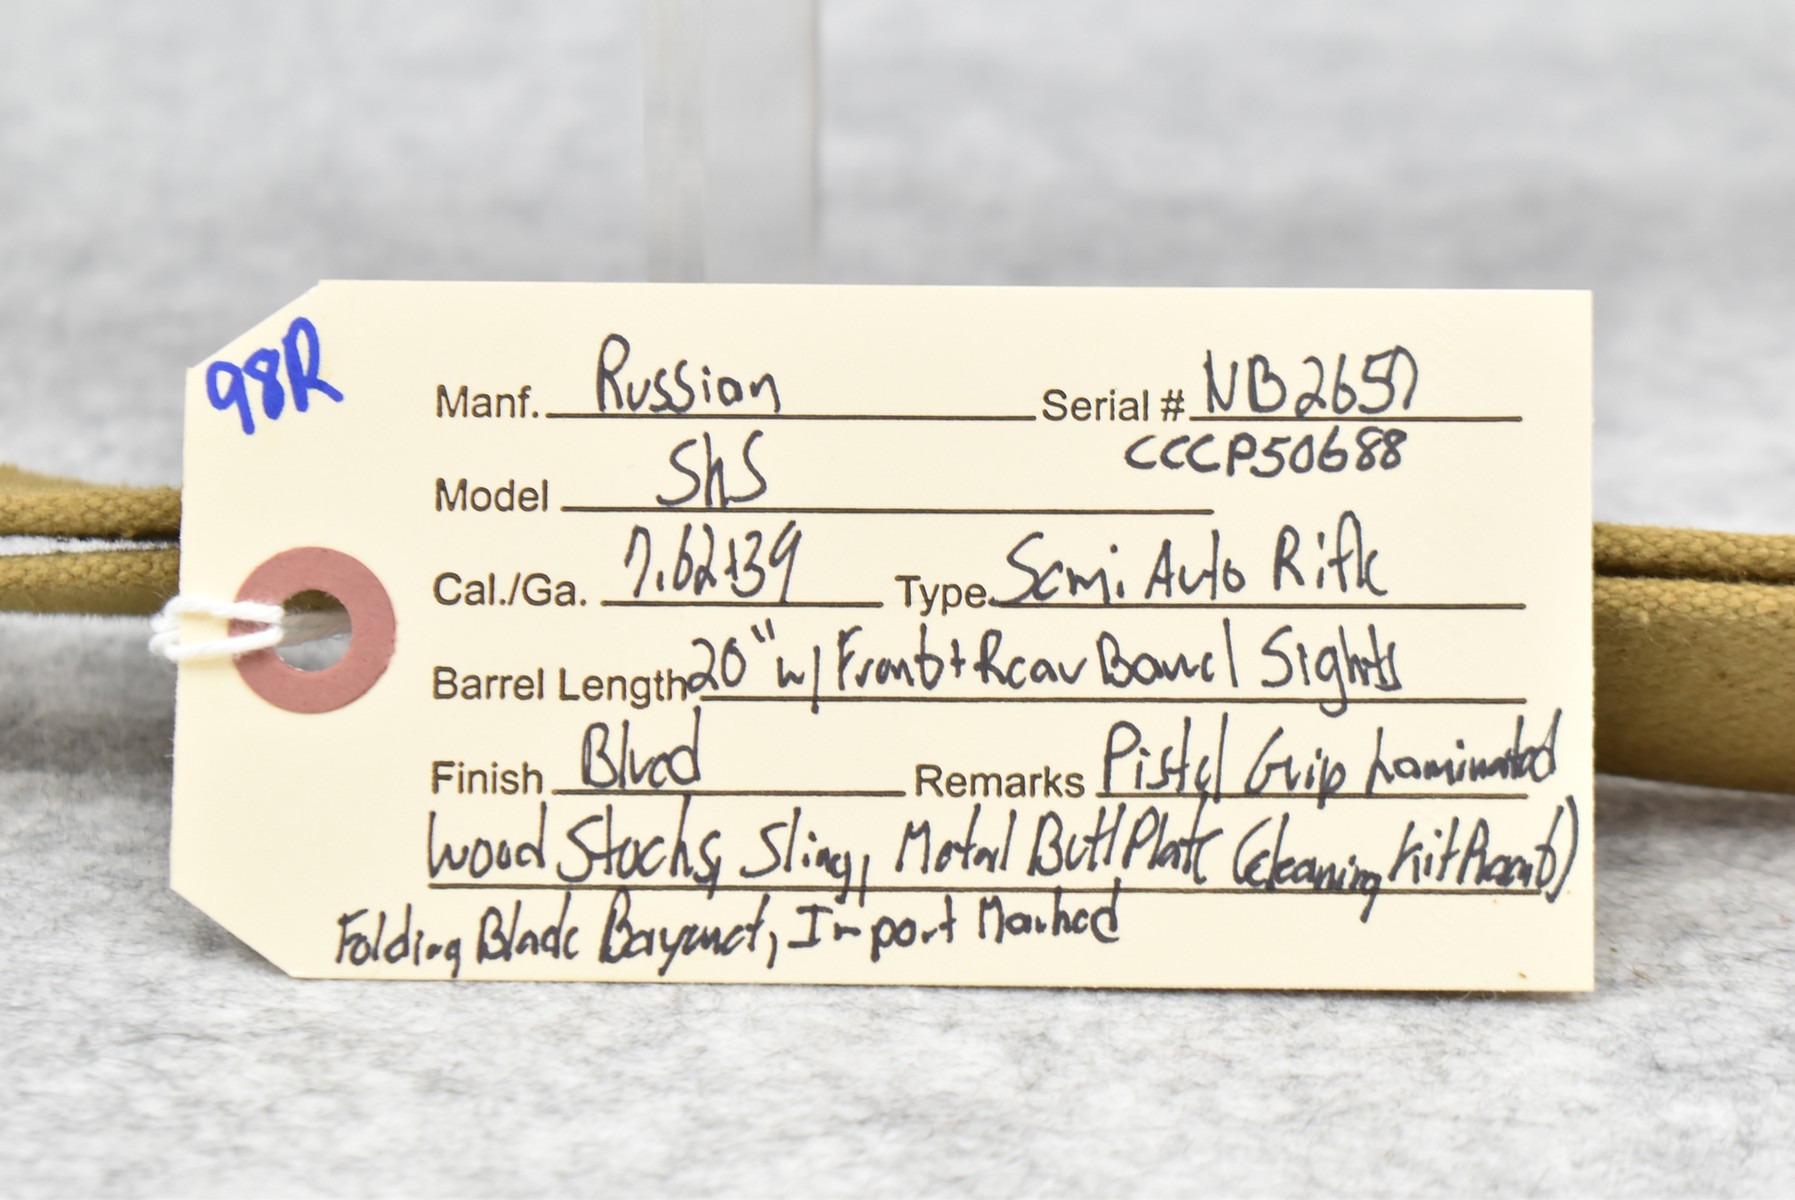 98R
Manf. Russian Serial # NB2657
CCCP50688
Model SKS
Cal./Ga. 7.62x39 Type Semi Auto Rifle
Barrel Length 20" w/ Front + Rear Barrel Sights
Finish Blued Remarks Pistol Grip Laminated
Wood Stocks, Sling, Metal Butt Plate (Cleaning Kit Present)
Folding Blade Bayonet, Import Marked